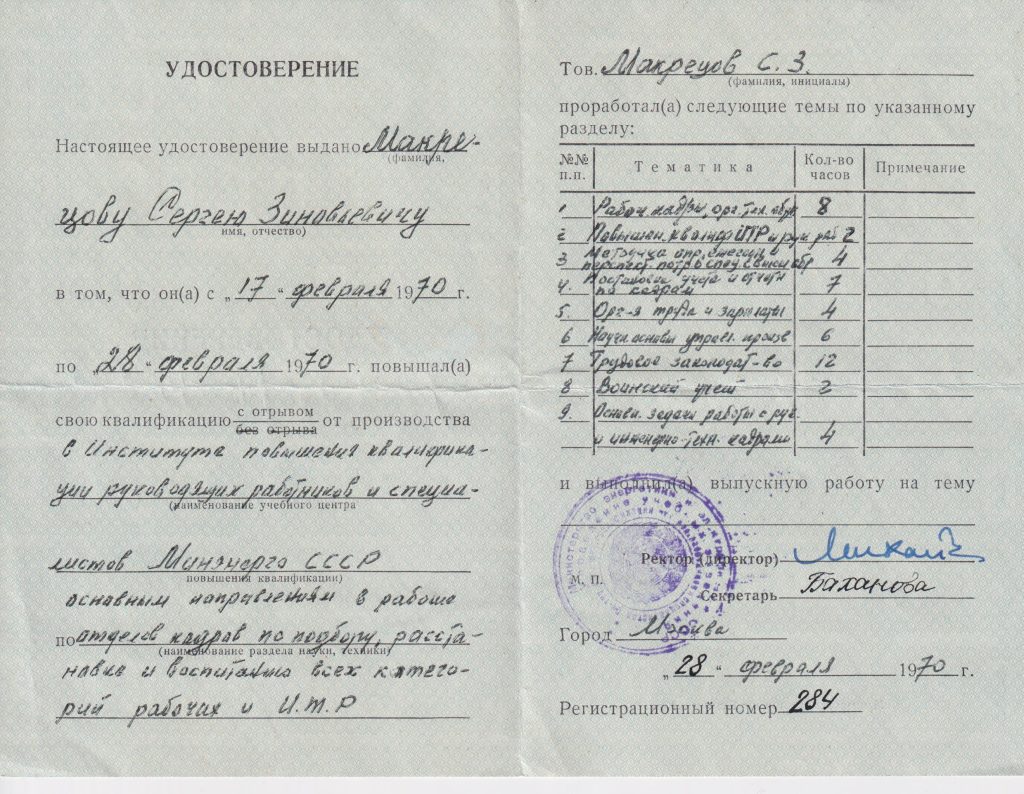 УДОСТОВЕРЕНИЕ
Настоящее удостоверение выдано Макре-
(фамилия,
цову Сергею Зиновьевичу
имя, отчество)
в том, что он(а) с „17“ февраля 1970 г.
по „28“ февраля 1970 г. повышал(а)
свою квалификацию с отрывом от производства
без отрыва
в Института повышения квалифика-
ции руководящих работников и специа-
(наименование учебного центра
листов Минэнерго СССР
повышения квалификации)
основным направлениям в работе
по отделов кадров по подбору, расста-
(наименование раздела науки, техники)
новке и воспитанию всех катего-
рий рабочих и И.Т.Р
Тов. Макрецов С. З.
(фамилия, инициалы)
проработал(а) следующие темы по указанному
разделу:
№№ п.п. Тематика Кол-во часов Примечание
1 Рабоч. кадры, орг. тех. обуч. 8
2 Повышен. квалиф ИТР и рук. раб 2
3 перспект. потр. 4
4. Постановка учета и отчетн по кадрам 7
5. Орг-я труда и зарплаты 4
6 Научн. основы управл. произв 6
7 Трудовое законодат-во 12
8 Воинский учет 2
9. Основн. задачи работы с рук.
и инженерно-техн. кадрами 4
и выполнил(а) выпускную работу на тему
Министерство энергетики и электрификации
Ректор (директор)
М. П.
Секретарь Баханова
Город Москва
„28“ февраля 1970 г.
Регистрационный номер 284